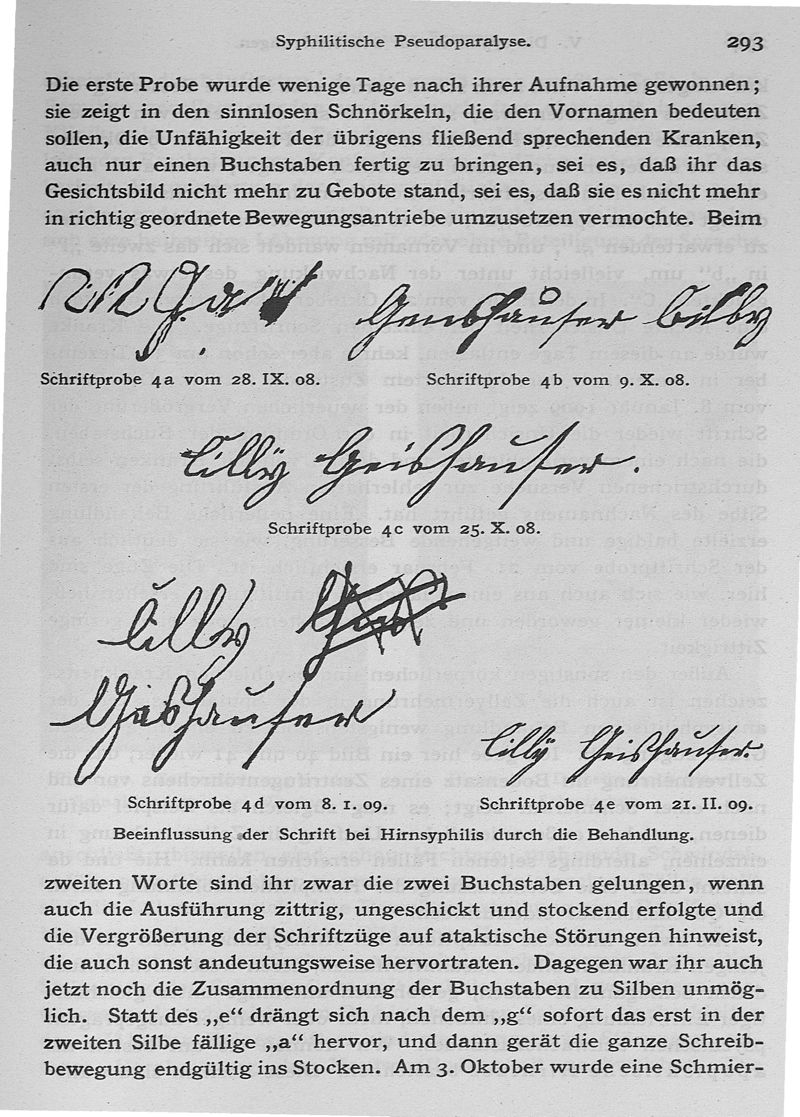 Syphilitische Pseudoparalyse. 293
Die erste Probe wurde wenige Tage nach ihrer Aufnahme gewonnen;
sie zeigt in den sinnlosen Schnörkeln, die den Vornamen bedeuten
sollen, die Unfähigkeit der übrigens fließend sprechenden Kranken,
auch nur einen Buchstaben fertig zu bringen, sei es, daß ihr das
Gesichtsbild nicht mehr zu Gebote stand, sei es, daß sie es nicht mehr
in richtig geordnete Bewegungsantriebe umzusetzen vermochte. Beim
Schriftprobe 4a vom 28. IX. 08. Schriftprobe 4b vom 9. X. 08.
Cilly Geishauser.
Schriftprobe 4c vom 25. X. 08.
Cilly
Cilly Geishauser.
Schriftprobe 4d vom 8. 1. 09. Schriftprobe 4e vom 21. II. 09.
Beeinflussung der Schrift bei Hirnsyphilis durch die Behandlung.
zweiten Worte sind ihr zwar die zwei Buchstaben gelungen, wenn
auch die Ausführung zittrig, ungeschickt und stockend erfolgte und
die Vergrößerung der Schriftzüge auf ataktische Störungen hinweist,
die auch sonst andeutungsweise hervortraten. Dagegen war ihr auch
jetzt noch die Zusammenordnung der Buchstaben zu Silben unmög-
lich. Statt des „e“ drängt sich nach dem „g“ sofort das erst in der
zweiten Silbe fällige „a“ hervor, und dann gerät die ganze Schreib-
bewegung endgültig ins Stocken. Am 3. Oktober wurde eine Schmier-